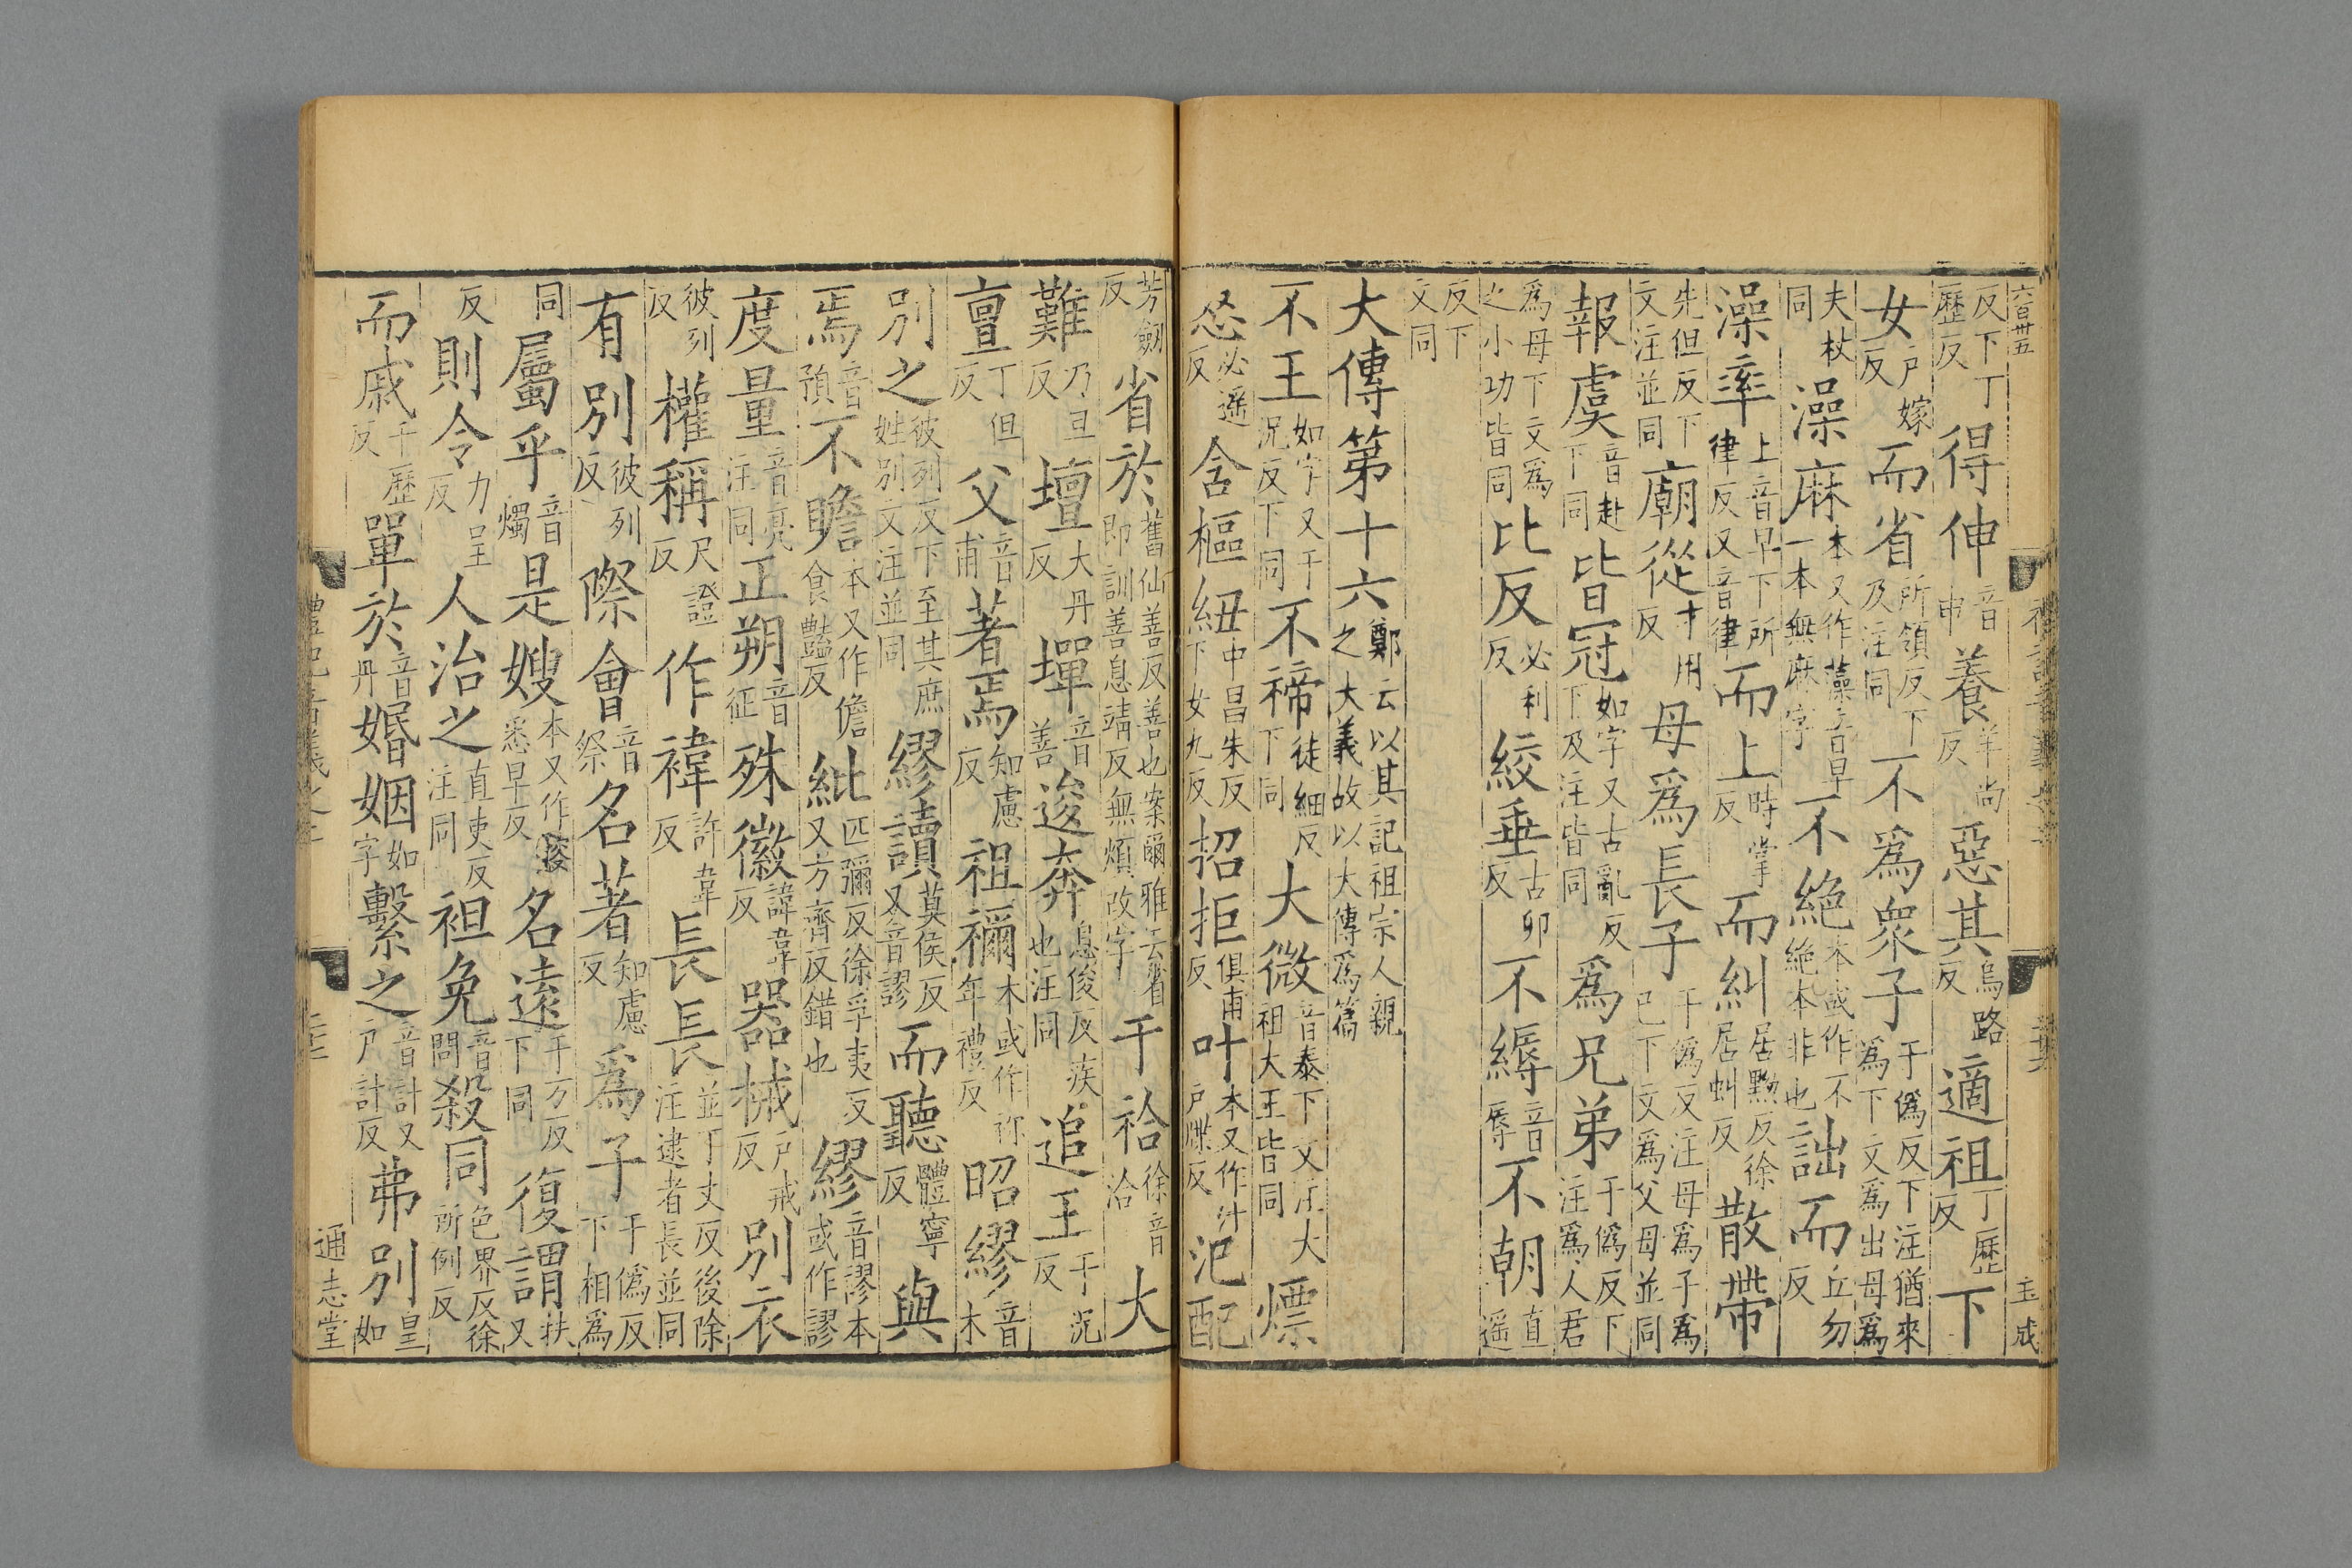 六百卅五
反下丁歷反得伸音申養羊尚反惡其烏路反適祖丁歷反下
女戶嫁反而省所領反下及注同不爲衆子于僞反下注猶來爲下文爲出母爲
夫杖同澡麻本又作藻音早一本無麻字不絶本或作不絶本非也詘而丘勿反
澡率上音早下所律反又音律而上時掌反而糾居黝反徐居虯反散帶
先但反下文注並同廟從才用反母爲長子于僞反注母爲子爲已下文爲父母並同
報虞音赴下同皆冠如字又古亂反下及注皆同爲兄弟于僞反下注爲人君
爲母下文爲之小功皆同比反必利反絞垂古卯反不縟音辱不朝直遥
反下文同
大傳第十六鄭云以其記祖宗人親之大義故以大傳爲篇
不王如字又于況反下同不禘徒細反下同大微音泰下文注大祖大王皆同熛
必遥反含樞紐中昌朱反下女九反招拒俱甫反叶本又作汁戶牒反汜配
芳劒反省於舊仙善反善也案爾雅云省即訓善息靖反無煩改字干祫徐音洽大
難乃旦反壇大丹反墠音善逡奔息俊反疾也注同追王于況反
亶丁但反父音甫著焉知慮反祖禰本或作祢年禮反昭繆音木
別之彼列反下至其庶姓別文注並同繆讀莫侯反又音謬而聽體寧反與
焉音預不贍本又作儋食豔反紕匹彌反徐孚夷反又方齊反錯也繆音謬本或作謬
度量音亮注同正朔音征殊徽諱韋反器械戶戒反別衣
彼列反權稱尺證反作褘許韋反長長並丁丈反後除注逮者長並同
有別彼列反際會音祭名著知慮反爲子于僞反下相爲
同屬乎音燭是嫂本又作㛮悉早反名遠于万反下同復謂扶又
反則令力呈反人治之直吏反注同袒免音問殺同色界反徐所例反
而戚千歷反單於音丹婚姻如字繫之音計又戶計反弗別皇如
通志堂